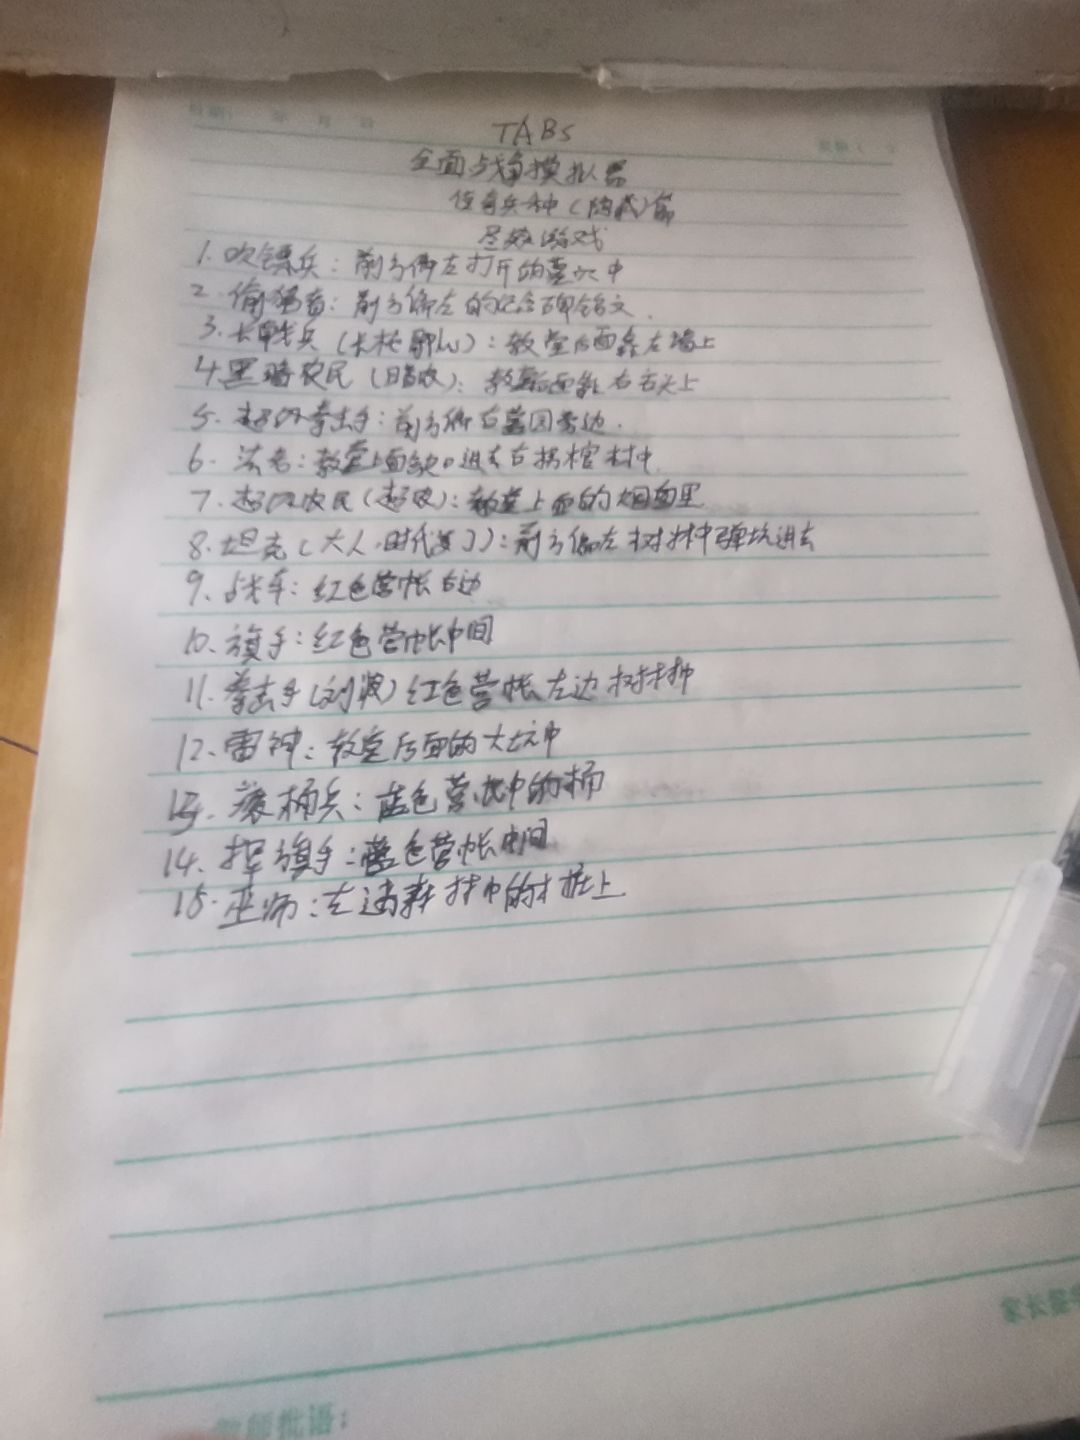 TABS
全面战争模拟器
兵种(隐藏)篇
游戏
1. 吹镖兵：前方偏左打开的墓穴中
2. 偷猎者：前方偏左的纪念碑铭文.
3. 长戟兵(长枪)：教堂后面靠左墙上
4. 黑暗农民(暗农)：教堂后面靠右石头上
5. 超凶拳击手：前方偏右墓园旁边.
6. 法老：教堂上面缺口进去右拐棺材中
7. 超级农民(超农)：教堂上面的烟囱里
8. 坦克(大人,时代变了)：前方偏左树林中弹坑进去
9. 战车：红色营帐右边
10. 旗手：红色营帐中间
11. 拳击手(刘波)红色营帐左边树林
12. 雷神：教堂后面的大坑中
13. 滚桶兵：蓝色营帐中的桶
14. 挥旗手：蓝色营帐中间
15. 巫师：左边森林中的木桩上
家长签
教师批语：